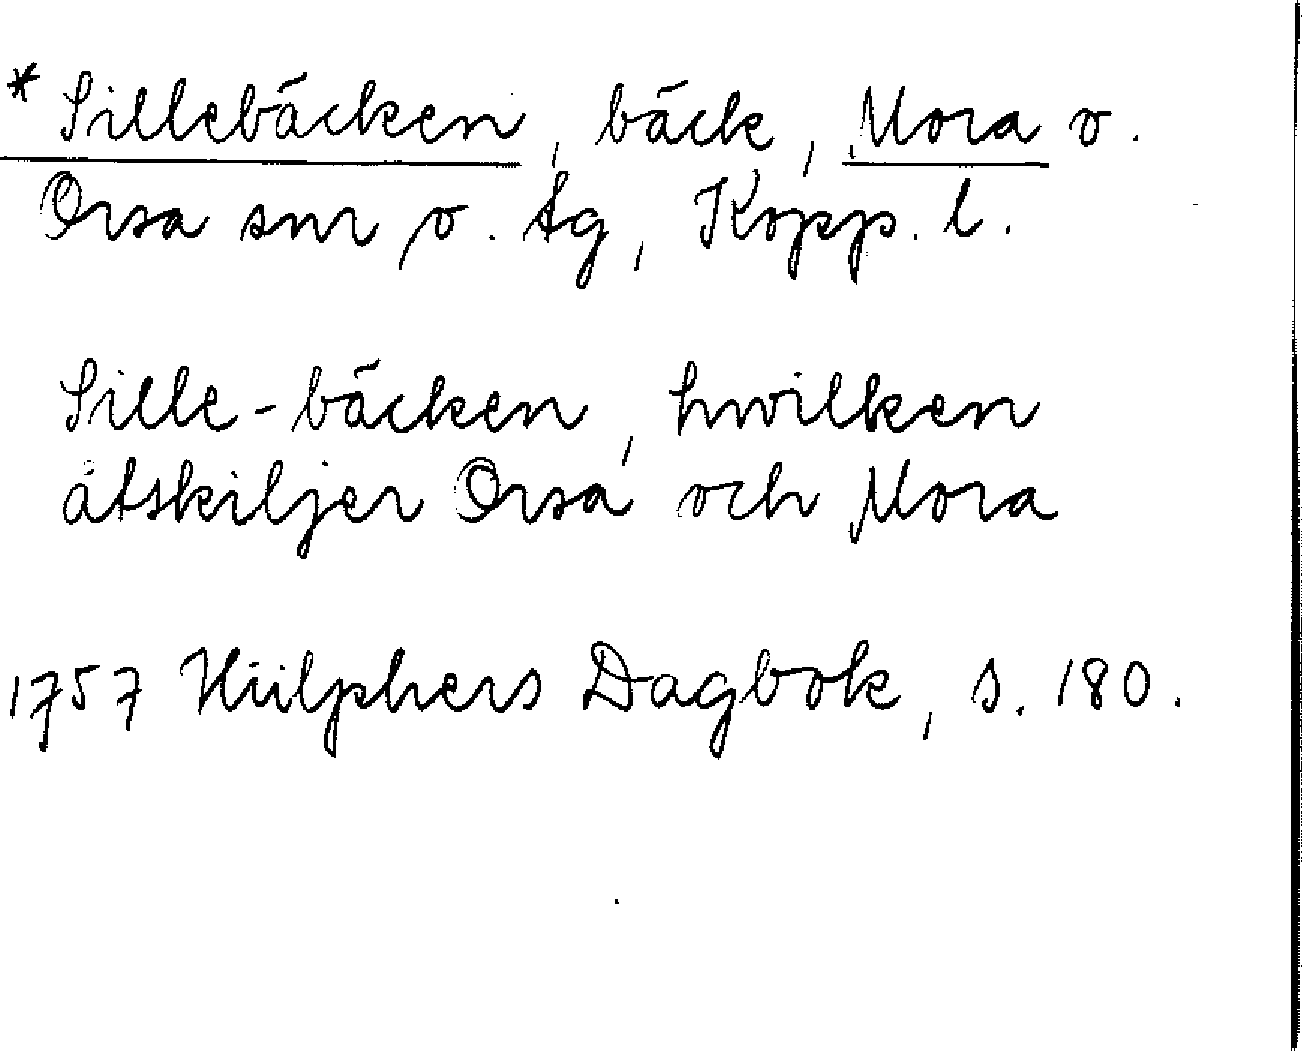 * Sillebäcken, bäck, Mora o.
Orsa snr, o. tg, Kopp. l.
Sille-bäcken, hwilken
åtskiljer Orsa och Mora
1757 Hülphers Dagbok, s. 180.